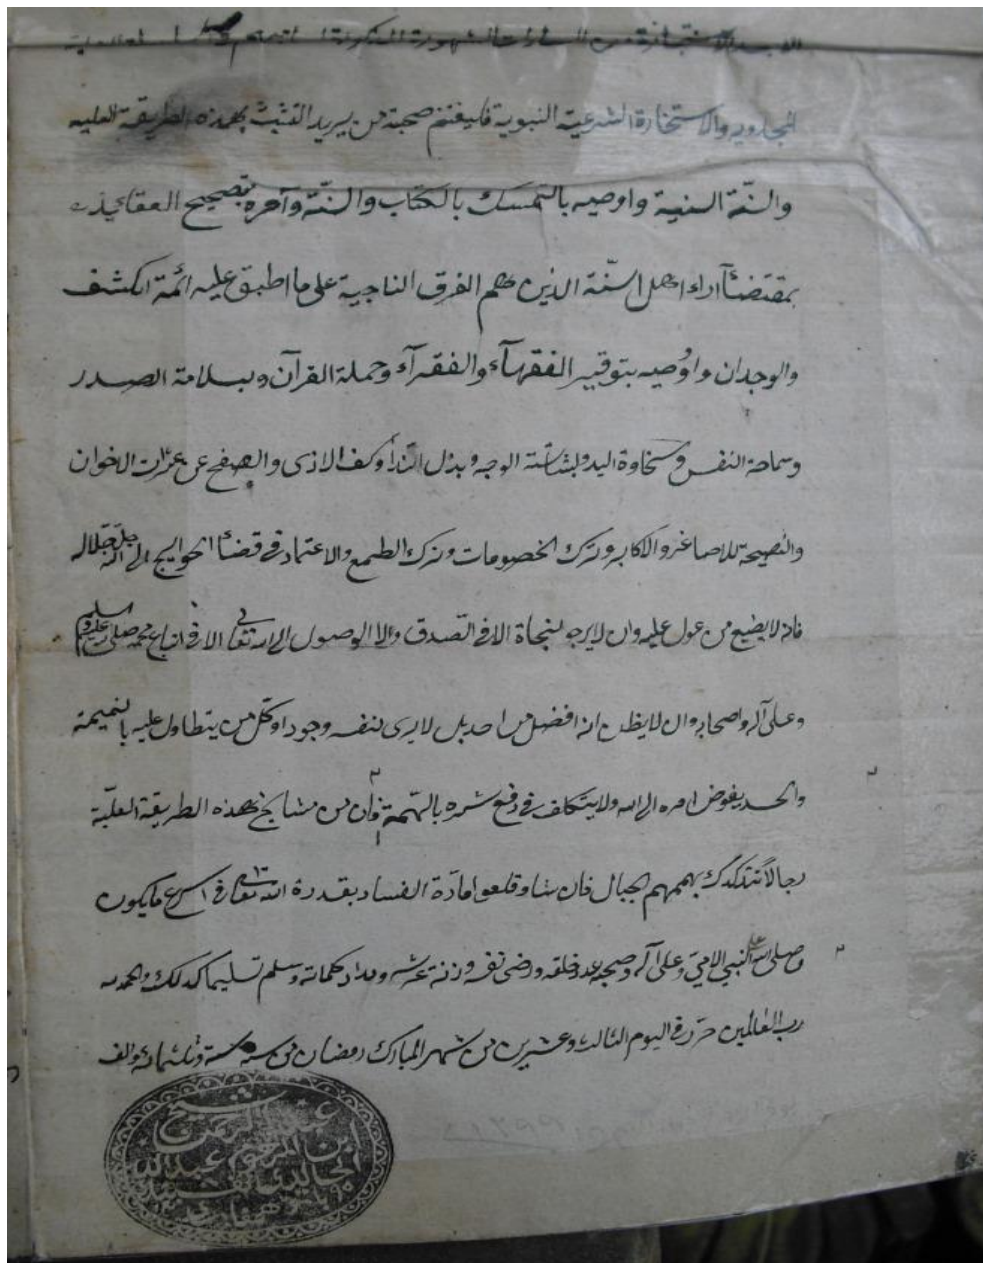 المجددية والاستخارة الشرعية النبوية فليغتنم صحبة من يريد التشبث بهذه الطريقة العليه
والسنّة السنية واوصيه بالتمسك بالكتاب والسنّة وآمره بتصحيح العقايد
بمقتضئ آراء اهل السنّة الذين هم الفرق الناجية على ما اطبق عليه ائمة الكشف
والوجدان واوُصيه بتوقير الفقهآء والفقرآء وحملة القرآن وبسلامة الصدر
وسماحة النفس وسخاوة اليد وبشاشة الوجه وبذل الندأ وكف الاذى والصفح عن عثرات الاخوان
والنصيحة للاصاغر والاكابر وترك الخصومات وترك الطمع والاعتماد في قضأ الحوايج الى الله جلّ جلاله
فانه لا يضيع من عول عليه وان لا يرجو النجاة الا في الصدق والا الوصول الى الله تعالى الا في اتباع محمد صلى الله عليه وسلم
وعلى آله واصحابه وان لا يظن انه افضل من احد بل لا يرى لنفسه وجودا وكل من يتطاول عليه بالنميمة
والحسد يفوض امره الى الله ولا يتكلف في دفع شره بالهمة وان من مشايخ هذه الطريقة العليّة
رجالاً تتدكدك بهممهم الجبال فان شاو قلعوا مادّة الفساد بقدرة الله تعالى في اسرع ما يكون
وصلى الله على النبي الامي وعلى آله وصحبه عدد خلقه ورضى نفسه وزنة عرشه ومداد كلماته وسلم تسليما كذلك والحمد لله
رب العالمين حرّر في اليوم الثالث وعشرين من شهر المبارك رمضان من سنة ستة وثلثمائة والف
الشيخ
عبد الرحمن
ابن المرحوم عبد الله
الخالدي